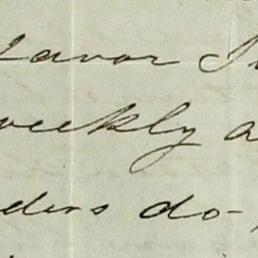 favor
weekly a
ders do-